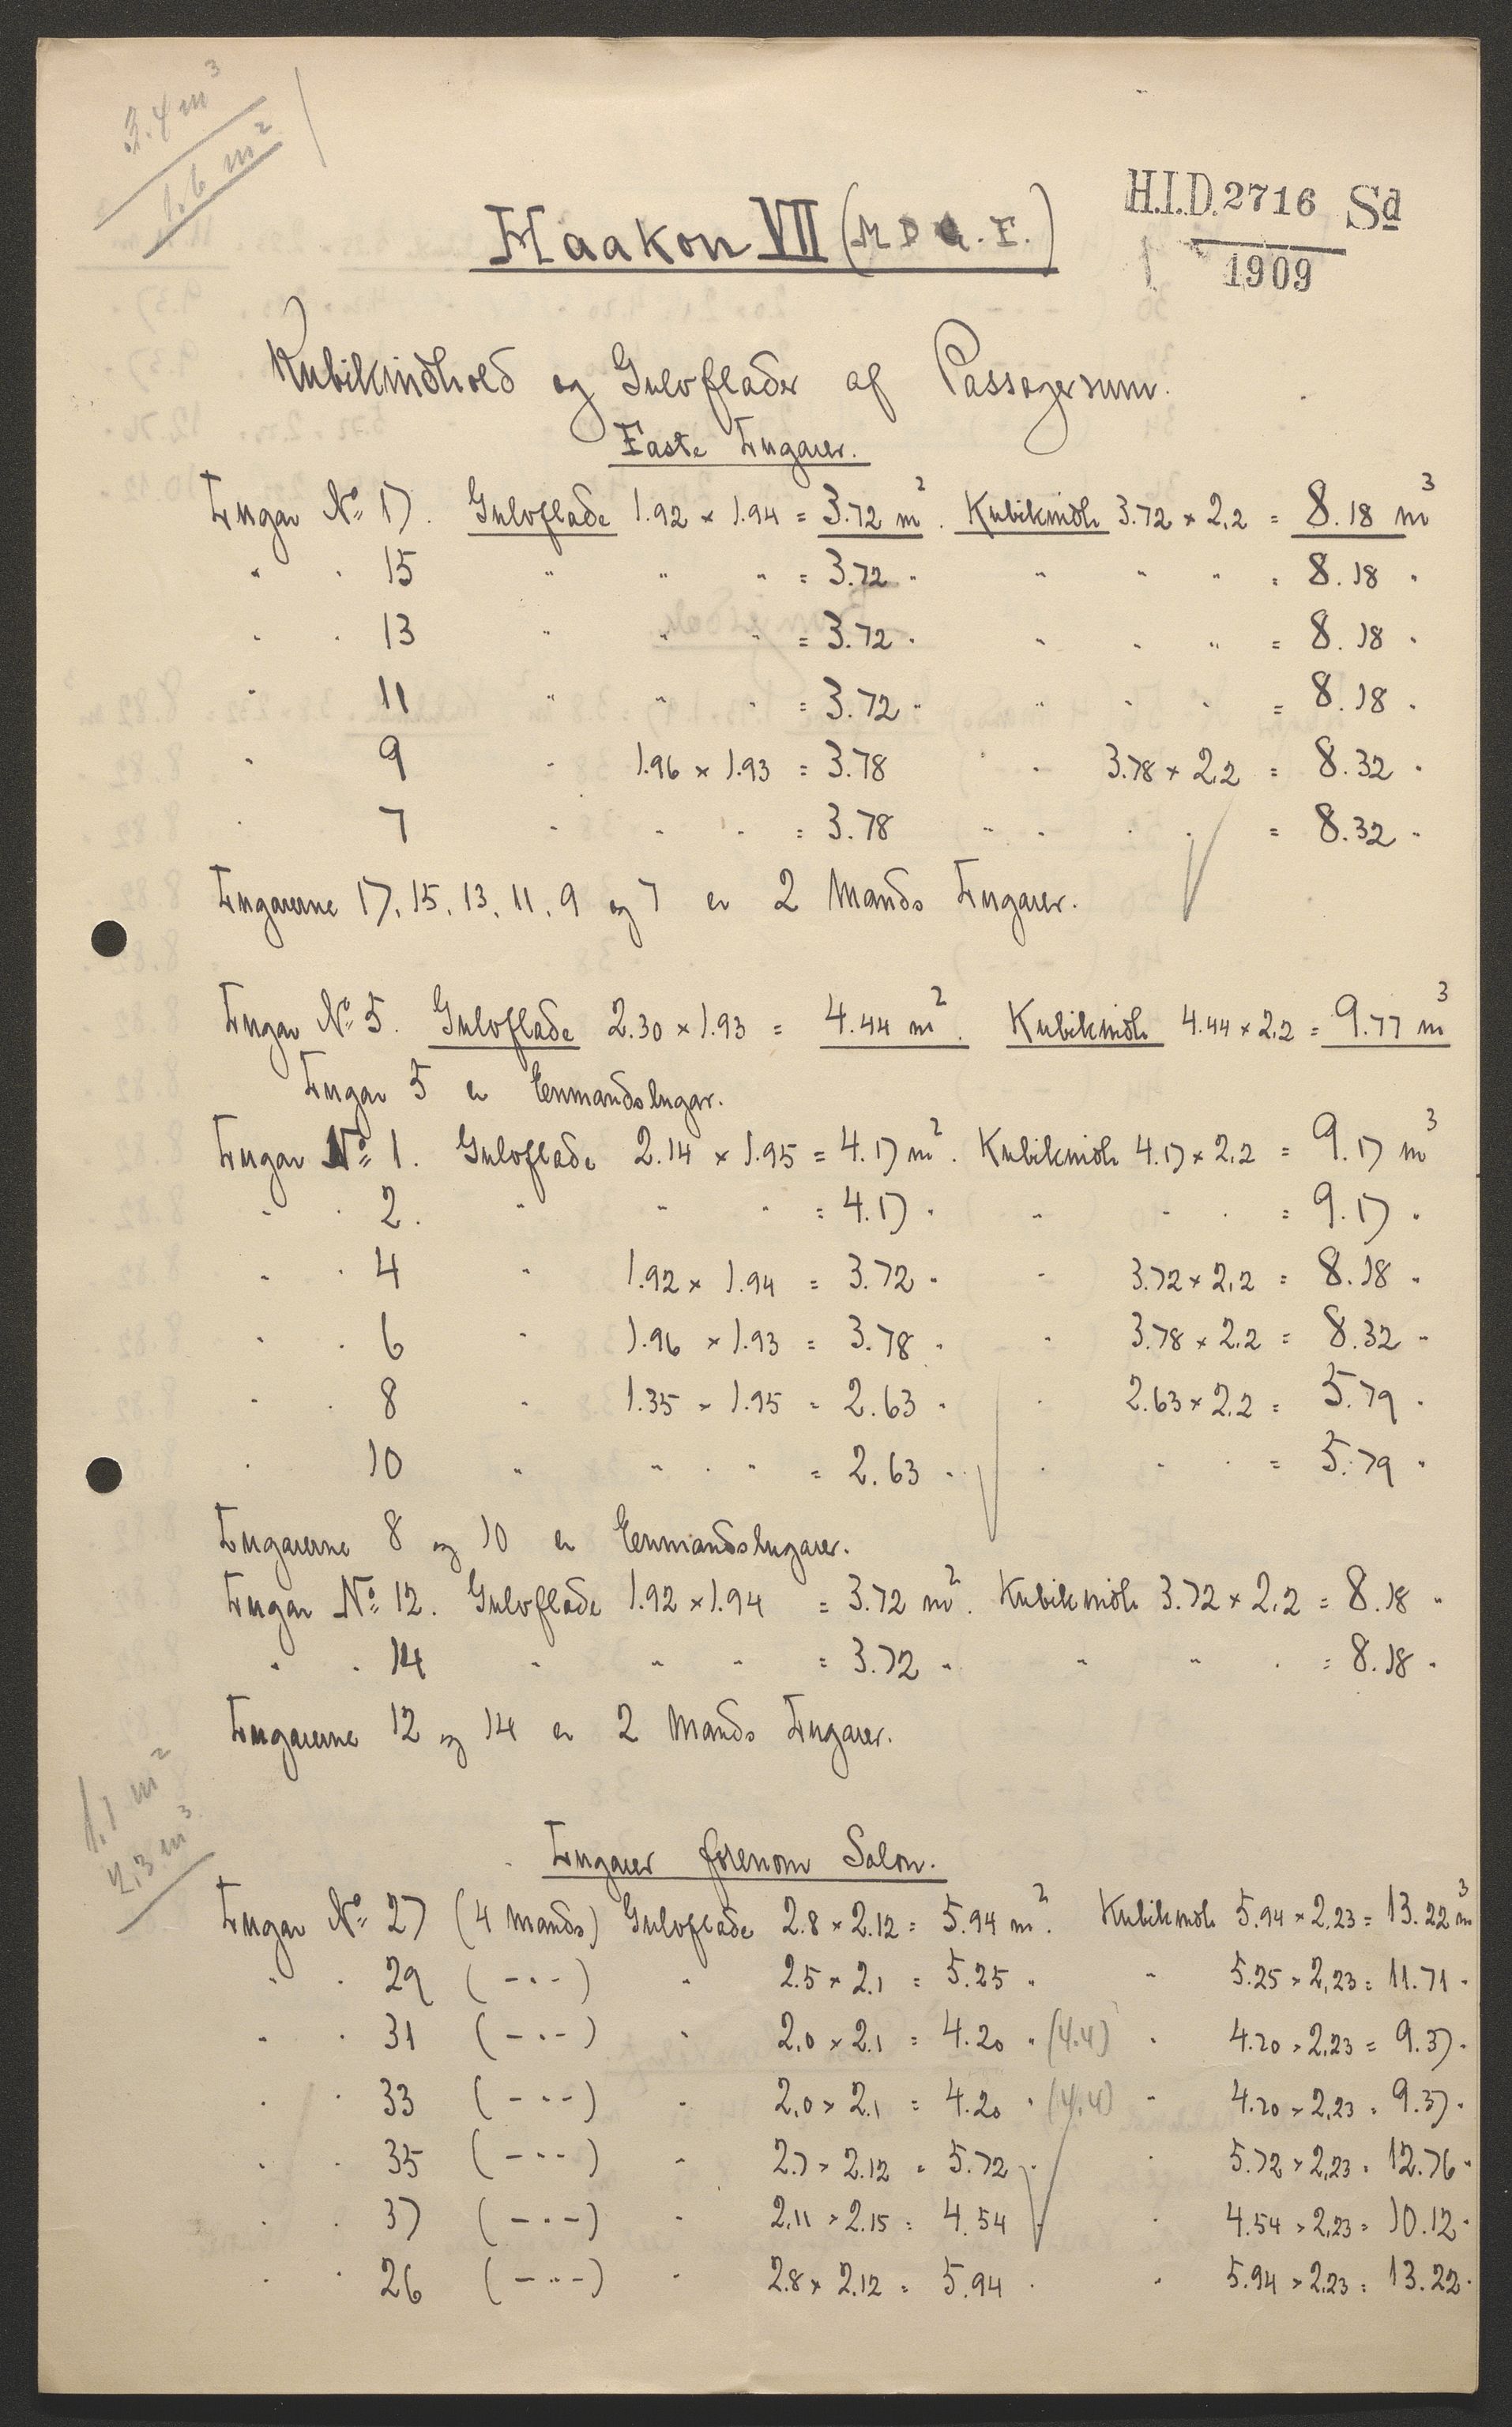 3.4 m³
1.6 m²
H.I.D. 2716 Sd
1909
Haakon VII (M D G. F.)
Kubikindhold og Gulvflader af Passagerrum.
Faste Lugarer.
Lugar No 17. Gulvflade 1.92 × 1.94 = 3.72 m². Kubikindh 3.72 × 2,2 = 8.18 m³
" " 15 " " " = 3.72 " " " " = 8.18 "
" " 13 " " " = 3.72 " " " " = 8.18 "
" 11 " " " = 3.72 " " " " = 8.18 "
" 9 " 1.96 × 1.93 = 3.78 " " 3.78 × 2,2 = 8.32 "
" 7 " " " = 3.78 " " " " = 8.32 "
Lugarerne 17, 15, 13, 11, 9 og 7 er 2 Mands Lugarer.
Lugar No 5. Gulvflade 2.30 × 1.93 = 4.44 m². Kubikindh 4.44 × 2,2 = 9.77 m³
Lugar 5 er Eenmandslugar.
Lugar No 1. Gulvflade 2.14 × 1.95 = 4.17 m². Kubikindh 4.17 × 2,2 = 9.17 m³
" " 2. " " " = 4.17 " " " " = 9.17 "
" " 4 " 1.92 × 1.94 = 3.72 " " 3.72 × 2,2 = 8.18 "
" " 6 " 1.96 × 1.93 = 3.78 " " 3.78 × 2.2 = 8.32 "
" " 8 " 1.35 × 1.95 = 2.63 " " 2.63 × 2.2 = 5.79 "
" 10 " " " " = 2.63 " " " " = 5.79 "
Lugarerne 8 og 10 er Eenmandslugarer.
Lugar No 12. Gulvflade 1.92 × 1.94 = 3.72 m². Kubikindh 3.72 × 2,2 = 8.18 "
" " 14 " " " = 3.72 " " " " = 8.18 "
Lugarerne 12 og 14 er 2 Mands Lugarer.
1.1 m²
2,3 m³
Lugarer forenom Salon.
Lugar No 27 (4 Mands) Gulvflade 2.8 × 2.12 = 5.94 m². Kubikindh 5.94 × 2,23 = 13.22 m³
" " 29 (- " -) " 2.5 × 2.1 = 5.25 " " 5.25 × 2,23 = 11.71 "
" " 31 (- " -) " 2,0 × 2.1 = 4.20 " (4.4) " 4.20 × 2,23 = 9.37 "
" " 33 (- " -) " 2,0 × 2.1 = 4.20 " (4,4) " 4.20 × 2,23 = 9.37 "
" " 35 (- " -) " 2.7 × 2.12 = 5.72 " " 5.72 × 2,23 = 12.76 "
" " 37 (- " -) " 2,11 × 2.15 = 4.54 " " 4.54 × 2,23 = 10.12 "
" " 26 (- " -) " 2.8 × 2.12 = 5.94 " " 5.94 × 2,23 = 13.22 "